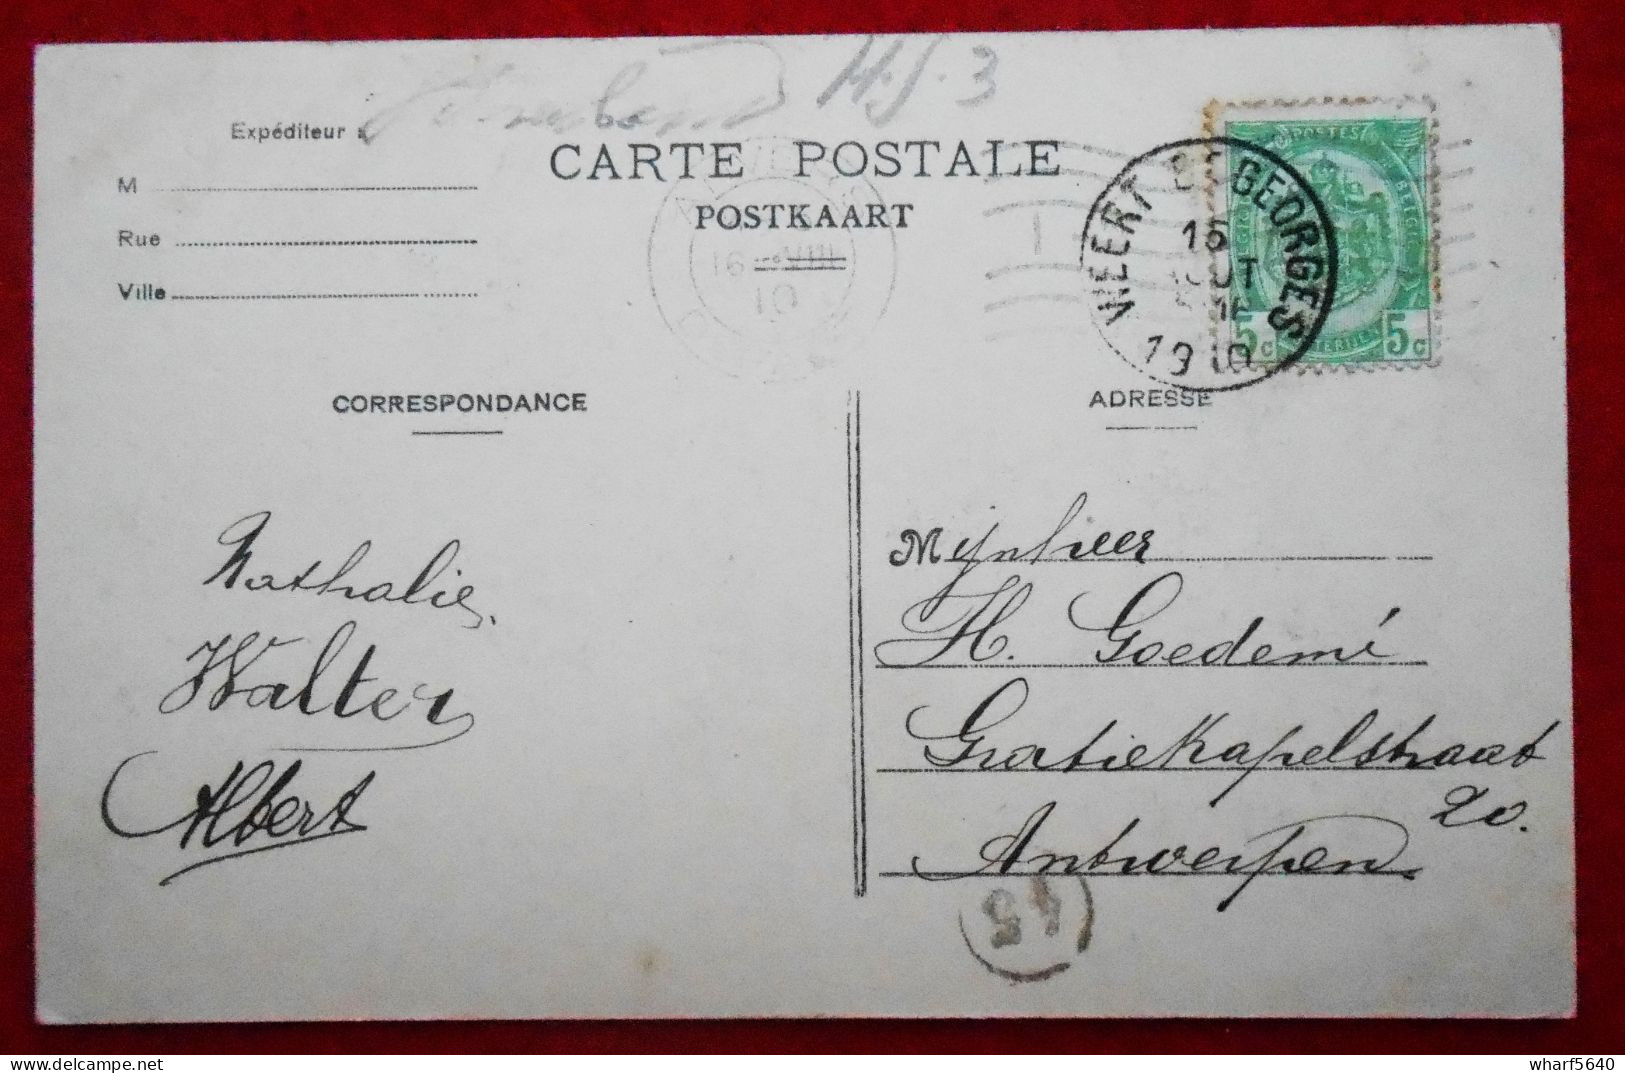 H.S. 3
Expéditeur :
CARTE POSTALE
POSTKAART
M
Rue
Ville
16 VIII
10
WEERT ST GEORGES
15
AOUT
1910
POSTES
5c 5c
CORRESPONDANCE
ADRESSE
Nathalie.
Walter
Albert
Mijnheer
H. Goedemé
Gratiekapelstraat
20.
Antwerpen
45
wharf5640